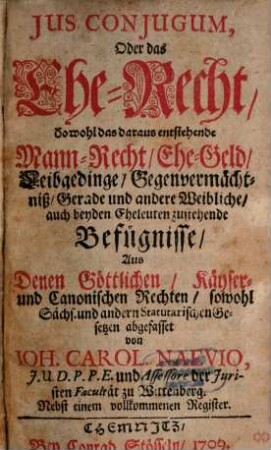 JUS CONJUGUM,
Oder das
Ehe=Recht/
Sowohl das daraus entstehende
Mann=Recht/ Ehe=Geld/
Leibgedinge/ Gegenvermächt-
niß/ Gerade und andere Weibliche/
auch beyden Eheleuten zustehende
Befügnisse/
Aus
Denen Göttlichen/ Käyser-
und Canonischen Rechten/ sowohl
Sächs. und andern Statutarischen Ge-
setzen abgefasset
von
JOH. CAROL. NAEVIO,
J. U. D. P. P. E. und Assessore der Juri-
sten Facultät zu Wittenberg.
Nebst einem vollkommenen Register.
CHEMNITZ/
Bey Conrad Stösseln/ 1709.